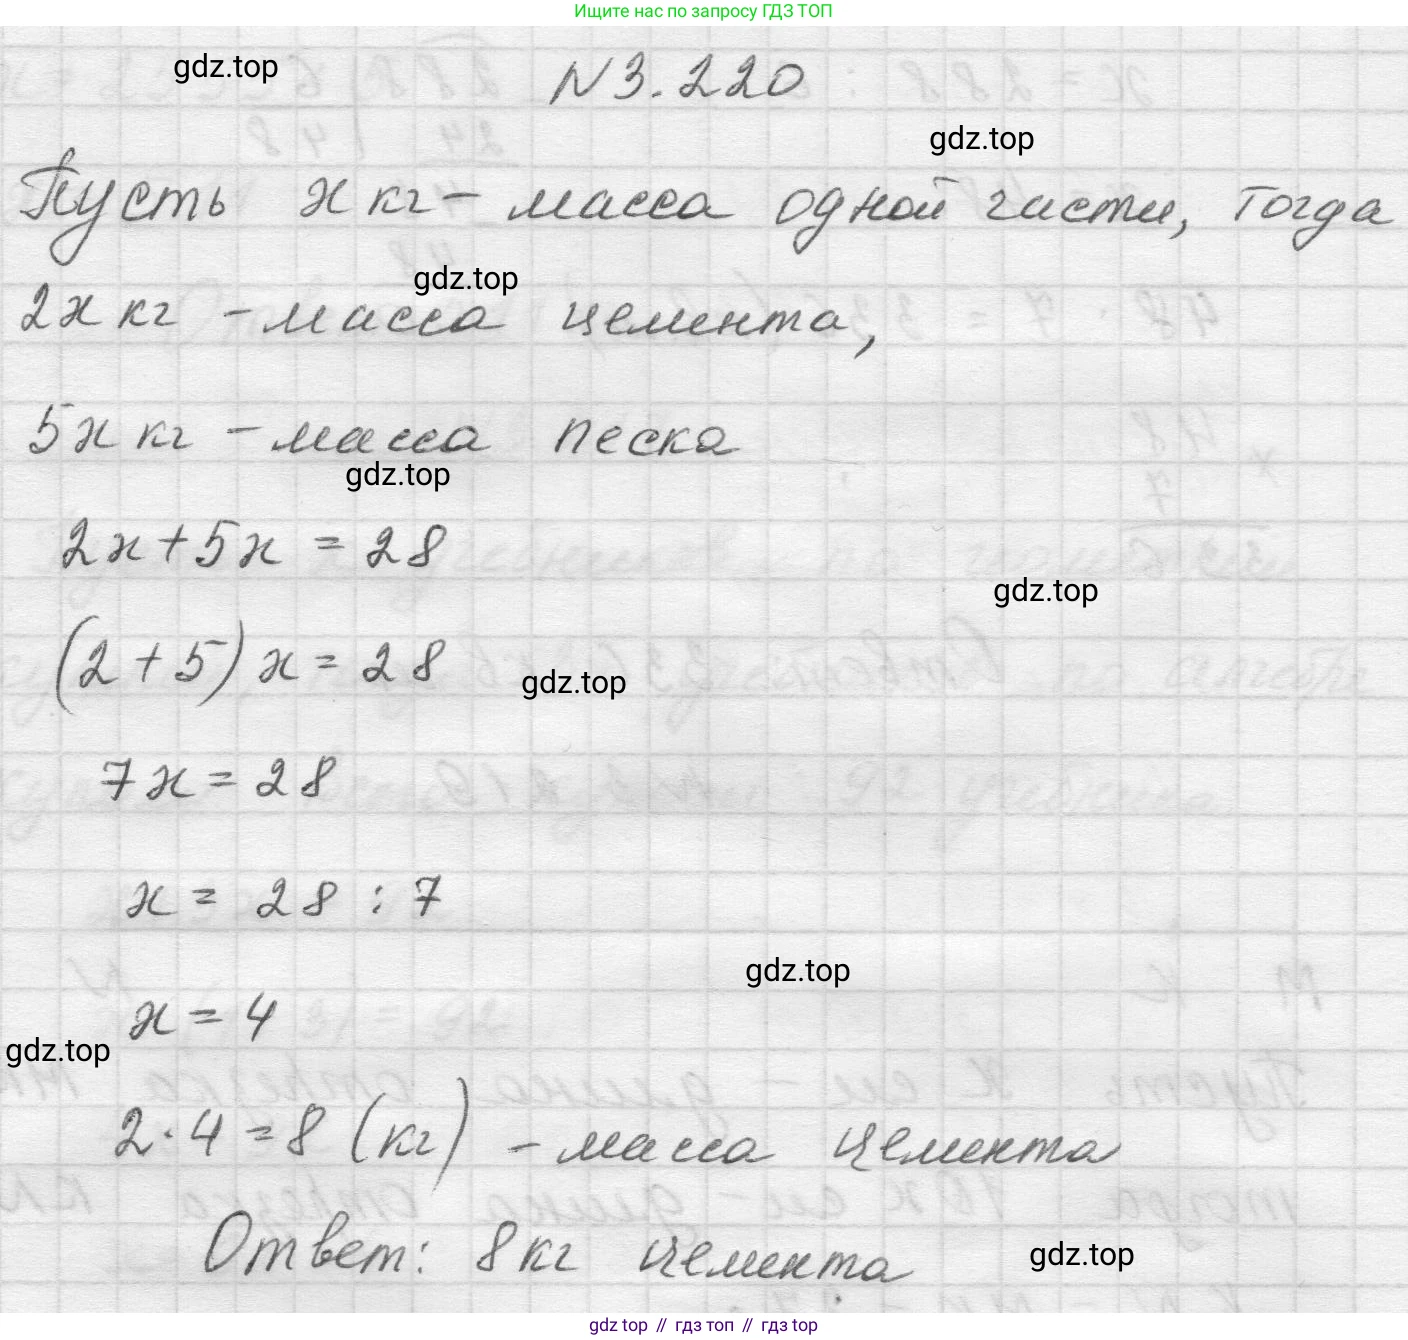 Ищите нас по запросу ГДЗ ТОП
gdz.top
N 3.220
gdz.top
Пусть x кг - масса одной части, тогда
gdz.top
2x кг - масса цемента,
5x кг - масса песка
gdz.top
2x + 5x = 28
gdz.top
(2 + 5) x = 28
gdz.top
7x = 28
x = 28 : 7
gdz.top
x = 4
gdz.top
2 · 4 = 8 (кг) - масса цемента
Ответ: 8 кг цемента
gdz.top
gdz top // гдз топ // gdz top